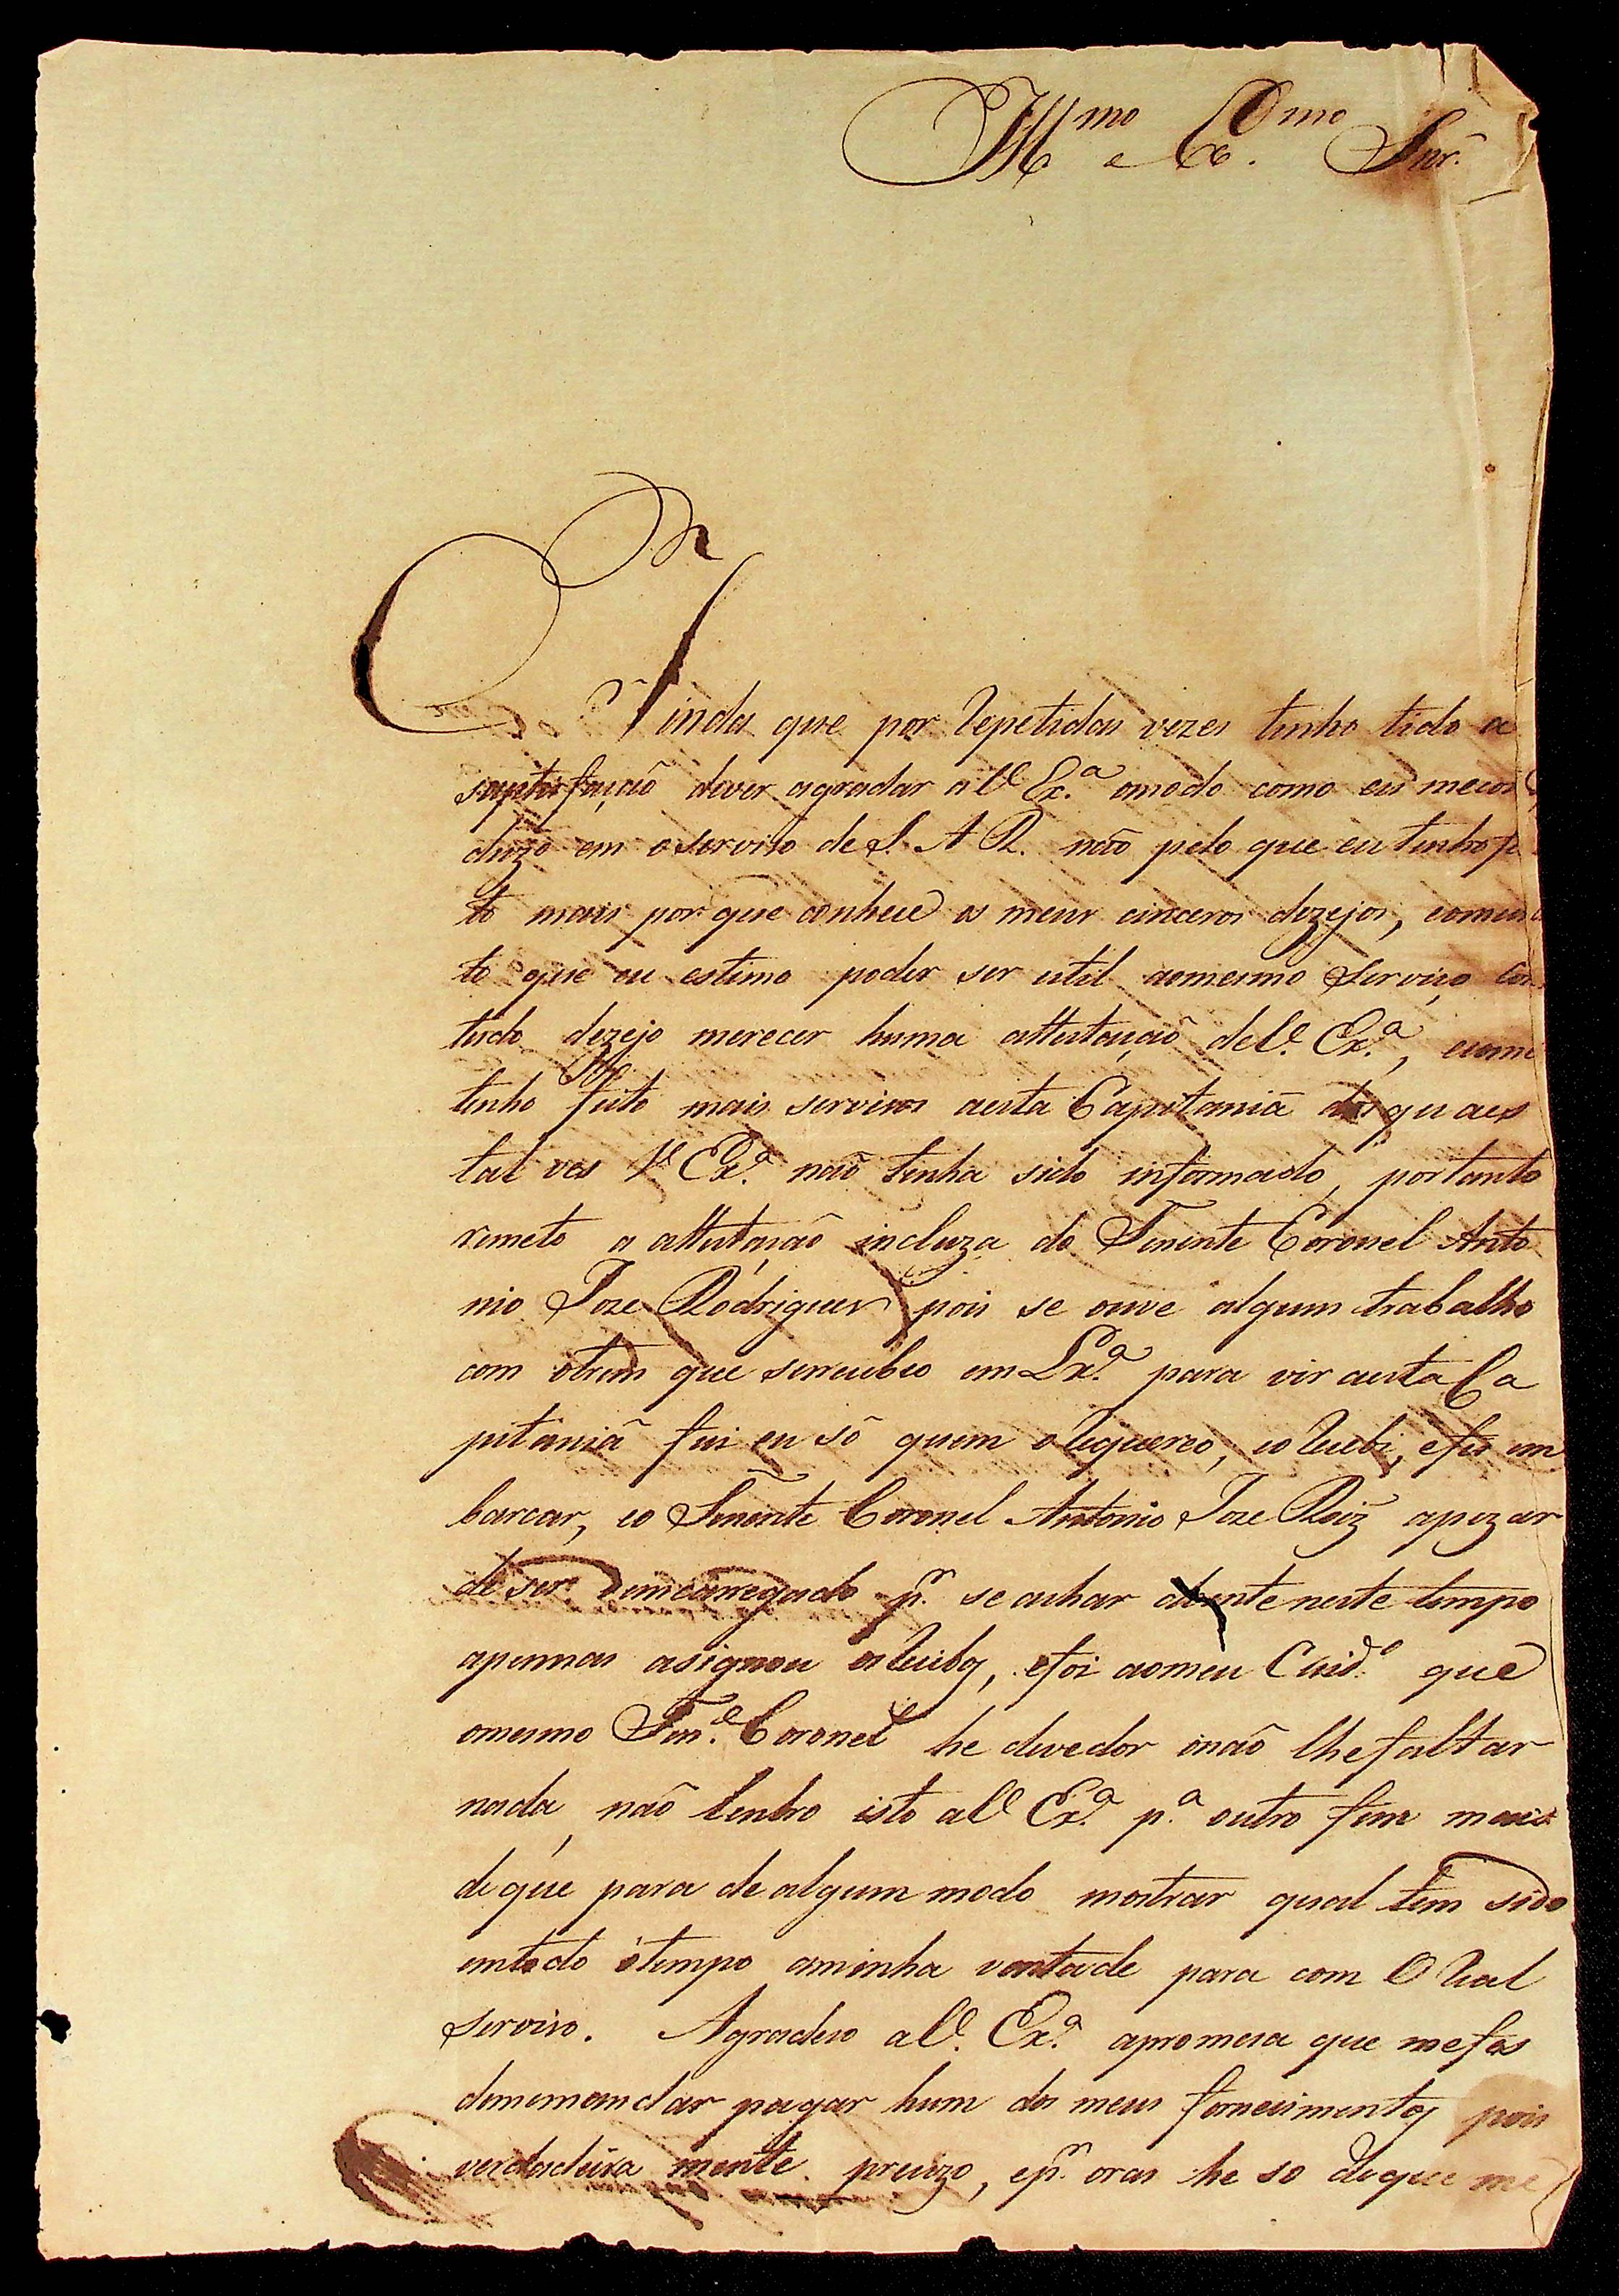 Illmo e Exmo Snr.
Ainda que por repetidas vezes tenho tido a
satisfação dever agradar a V. Exa. omodo como eu mecon
duzo em o serviso de S. A R. não pelo que eu tenho fe
to mais por que conhece os meus cinceros dezejos, eomui
to que eu estimo poder ser util aomesmo Serviço con
tudo dezejo merecer huma attestação de V. Exa., ecomo
tenho feito mais servisos aesta Capitaniã dos quaes
tal ves V. Exa. não tenha sido informado, portanto
remeto a attestação incluza do Tenente Coronel Anto
nio Joze Rodrigues pois se ouve algum trabalho
com otrem que serecebeo em Lxa. para vir aesta Ca
pitaniã fui eu só quem o requereo, eo recebi, efis em
barcar, eo Tenente Coronel Antonio Joze Roiz apezar
de ser emcarregado pr. se achar abzente neste tempo
apennas asignou os recibos, efoi aomeu Cuido. que
omesmo Tene. Coronel he devedor onaõ lhefaltar
nada, não lembro isto a V. Exa. pa. outro fim mais
deque para de algum modo mostrar qual tem sido
emtodo otempo aminha vontade para com O Real
serviso. Agradeso a V. Exa. apromesa que mefas
dememandar pagar hum dos meus fornecimentos pois
verdadeira mente precizo, epr. oras he so deque me